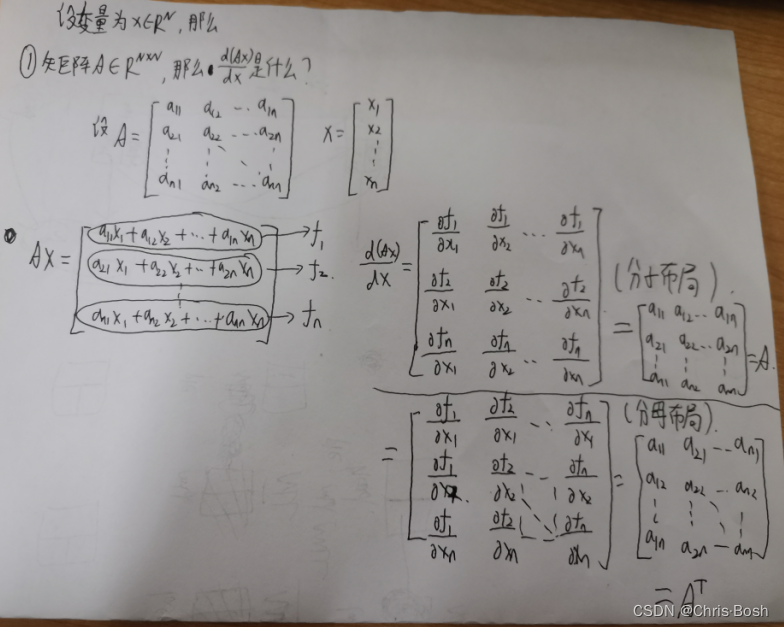 设变量为x∈R^N,那么
①矩阵A∈R^{N×N},那么 d(Ax)/dx 是什么?
设 A = [a11 a12 … a1n; a21 a22 … a2n; ⋮ ⋮ ⋱ ⋮; an1 an2 … ann] x = [x1; x2; ⋮; xn]
Ax = [a11x1+a12x2+…+a1nxn → f1
a21x1+a22x2+…+a2nxn → f2
⋮
an1x1+an2x2+…+annxn] → fn
d(Ax)/dx = [∂f1/∂x1 ∂f1/∂x2 … ∂f1/∂xn; ∂f2/∂x1 ∂f2/∂x2 … ∂f2/∂xn; ∂fn/∂x1 ∂fn/∂x2 … ∂fn/∂xn] (分子布局). = [a11 a12 … a1n; a21 a22 … a2n; ⋮ ⋮ ⋮; an1 an2 ann] = A.
= [∂f1/∂x1 ∂f2/∂x1 … ∂fn/∂x1; ∂f1/∂x2 ∂f2/∂x2 … ∂fn/∂x2; ∂f1/∂xn ∂f2/∂xn … ∂fn/∂xn] (分母布局). = [a11 a21 … an1; a12 a22 … an2; ⋮ ⋮ ⋱ ⋮; a1n a2n … ann]
= A^T
CSDN @Chris·Bosh